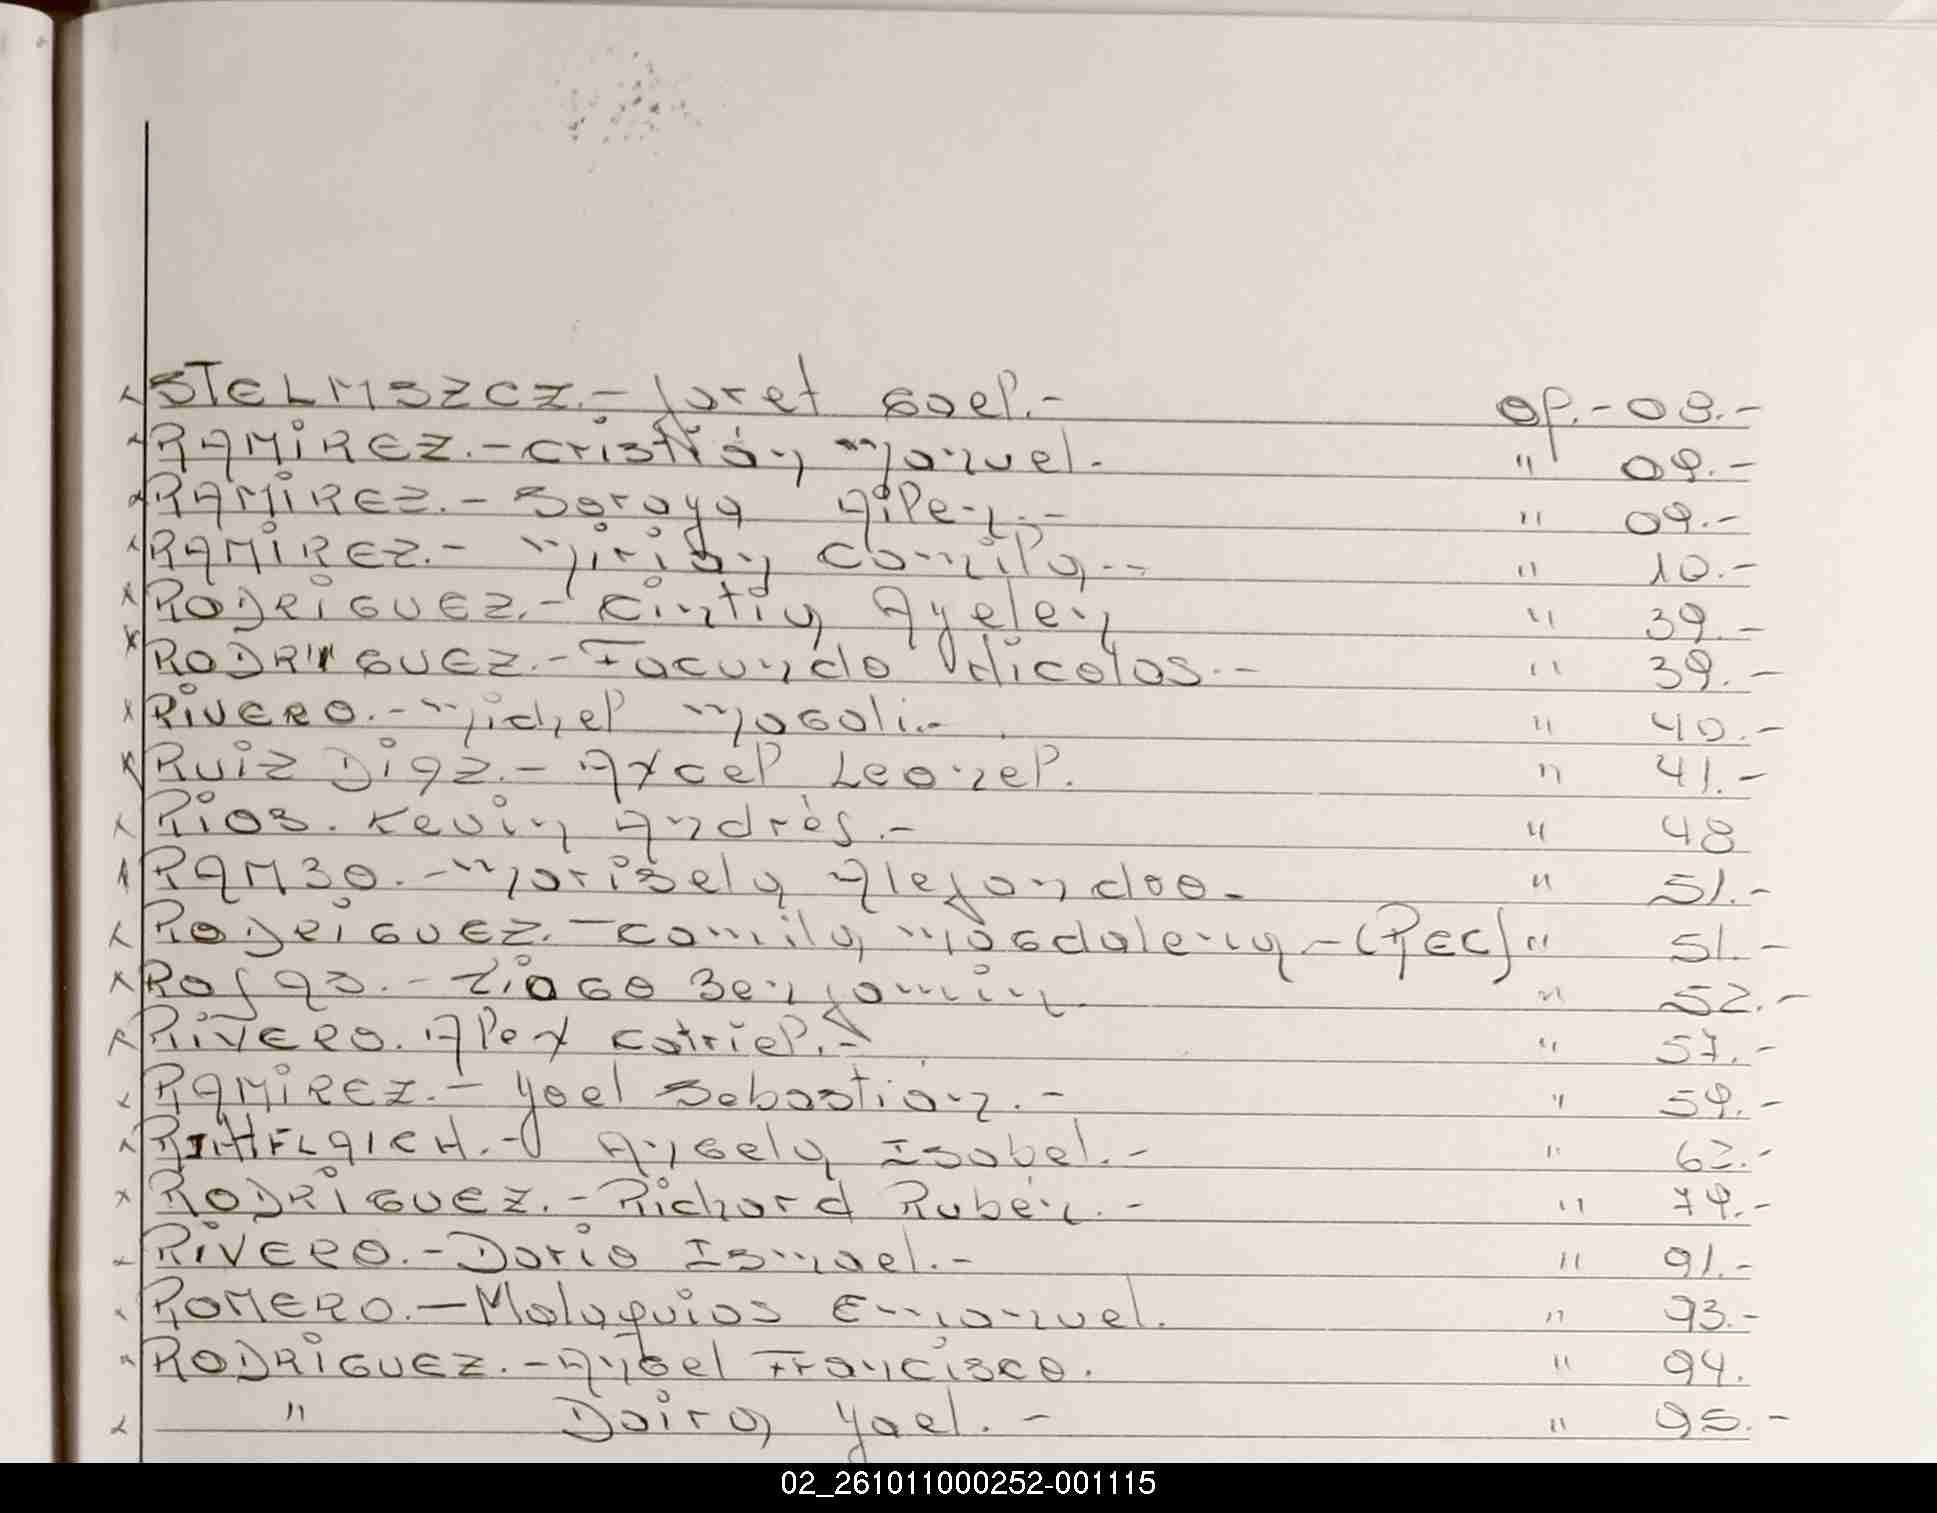 STELMSZCZ.- Jaret Gael.- op.- 08.-
RAMIREZ.- Cristián Manuel. " 09.-
RAMIREZ.- Soraya Ailen.- " 09.-
RAMIREZ.- Mirian Camila.- " 10.-
RODRIGUEZ.- Cintia Ayelen " 39.-
RODRIGUEZ.- Facundo Nicolas.- " 39.-
RIVERO.- Michel Magali.- " 40.-
RUIZ DIAZ.- Axcel Leonel. " 41.-
RIOS. Kevin Andrés.- " 48
RAMBO.- Marisela Alejandra. " 51.-
RODRIGUEZ.- Camila Magdalena - (REC) " 51.-
ROJAS.- Tiago Benjamin. " 52.-
RIVERO. Alex Catriel.- " 57.-
RAMIREZ.- Yael Sebastián.- " 59.-
Angela Isabel.- " 62.-
RODRIGUEZ.- Richard Rubén.- " 79.-
RIVERO.- Dario Ismael.- " 91.-
ROMERO.- Malaquias Emanuel. " 93.-
RODRIGUEZ.- Angel Francisco. " 94.
" Daira Yael.- " 95.-
02_261011000252-001115